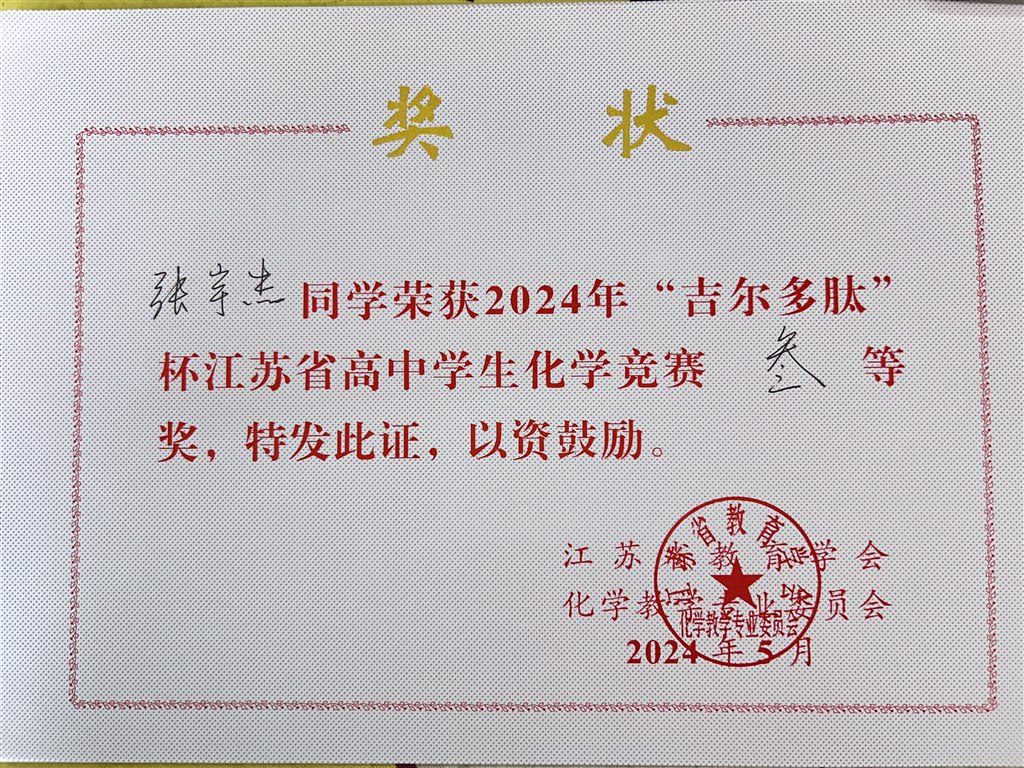 奖 状
张宇杰同学荣获2024年“吉尔多肽”
杯江苏省高中学生化学竞赛 叁 等
奖，特发此证，以资鼓励。
江苏省教育学会
化学教学专业委员会
2024年5月
江苏省教育学会
化学教学专业委员会